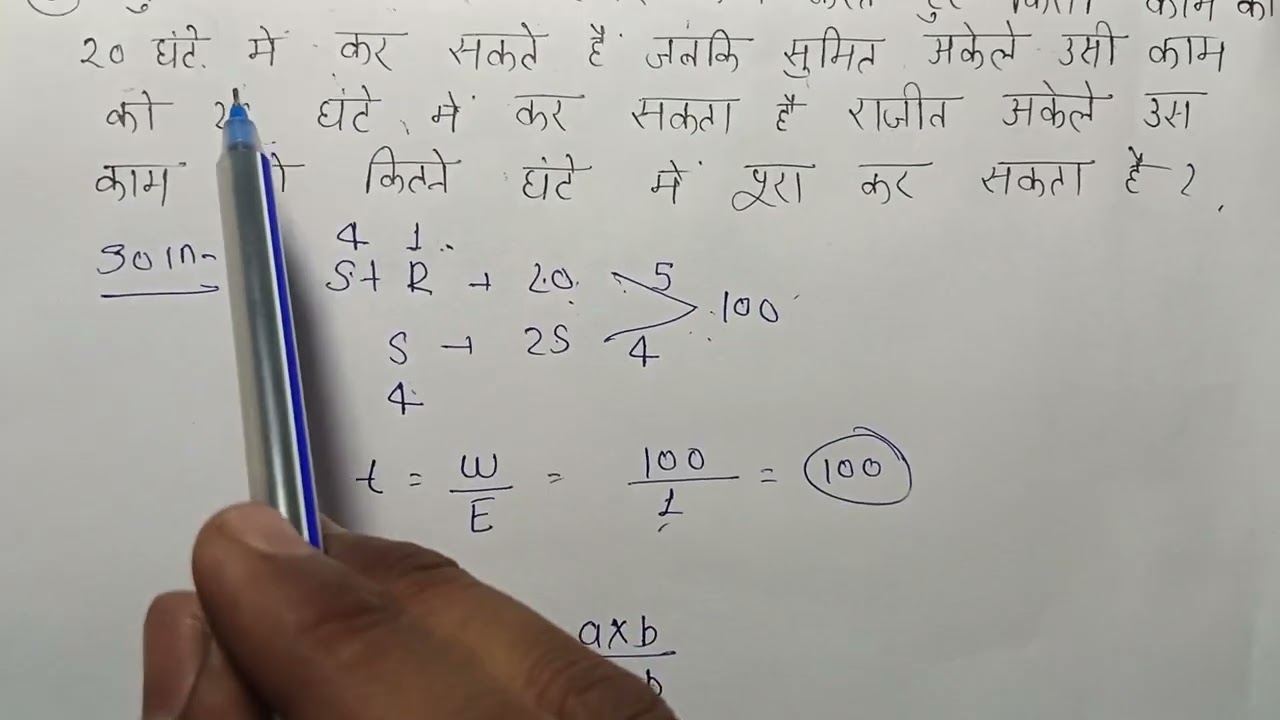 काम को
20 घंटे में कर सकते हैं जबकि सुमित अकेले उसी काम
को घंटे में कर सकता है राजीत अकेले उस
काम कितने घंटे में पूरा कर सकता है ?
Soln-
4 1
S+R → 20 5
100
S → 25 4
4
t = W/E = 100/1 = 100
a×b
b